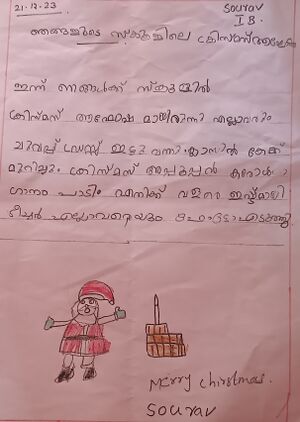 21-12-23
Sourav
I B.
ഞങ്ങളുടെ സ്കൂളിലെ ക്രിസ്മസ് ആഘോഷം
ഇന്ന് ഞങ്ങൾക്ക് സ്കൂളിൽ
ക്രിസ്മസ് ആഘോഷ മായിരുന്നു എല്ലാവരും
ചുവപ്പ് ഡ്രസ്സ് ഇട്ടു വന്നു. ക്ലാസിൽ കേക്ക്
മുറിച്ചു. ക്രിസ്മസ് അപ്പുപ്പൻ കരോൾ
ഗാനം പാടിം എനിക്ക് വളരെ ഇഷ്ടമായി
ടീച്ചർ എല്ലാവരെയും ഫോട്ടോ എടുത്തു.
Merry Christmas.
Sourav